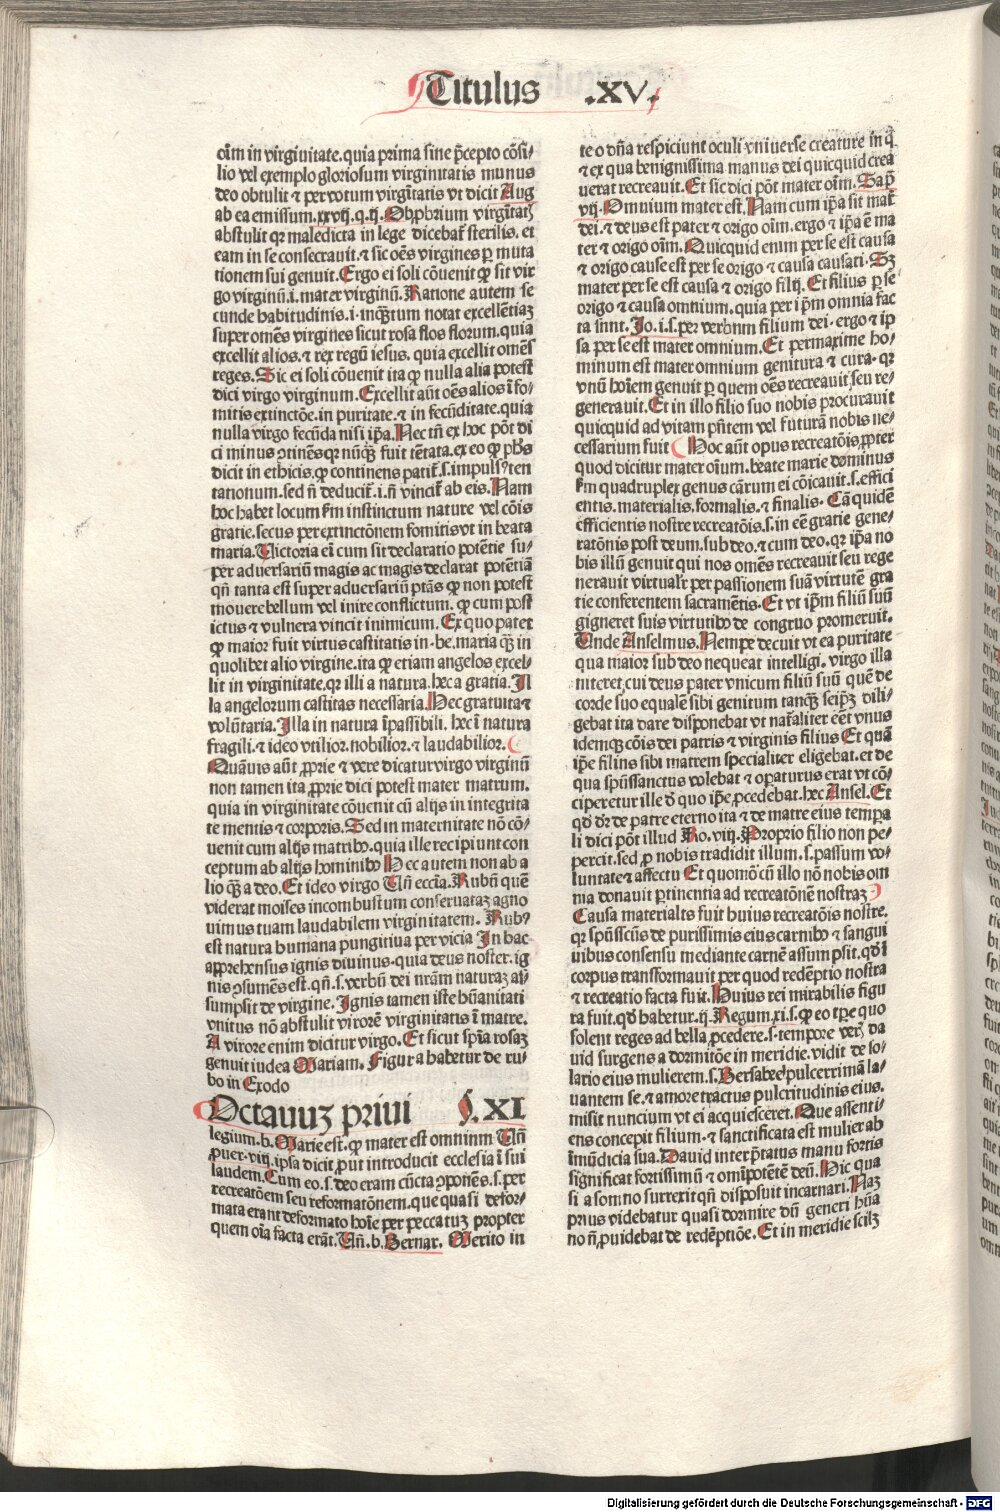 Titulus .XV.
oīm in virginitate. quia prima sine p̄cepto cōsi-
lio vel exemplo gloriosum virginitatis munus
deo obtulit ⁊ per votum virgītatis vt dicit Aug
ab ea emissum. xxvij. q. ij. Obpbrium virgītatꝭ
abstulit qꝛ maledicta in lege dicebaṫ sterilis. et
eam in se consecrauit. ⁊ sic oēs virgines ꝑ muta
tionem sui genuit. Ergo ei soli cōuenit ꝙ sit vir
go virginū. i. mater virginū. Ratione autem se
cunde habitudinis. i. inqꝫtum notat excellētiaꝫ
super omēs virgines sicut rosa flos florum. quia
excellit alios. ⁊ rex regū iesus. quia excellit omēs
reges. Sic ei soli cōuenit ita ꝙ nulla alia potest
dici virgo virginum. Excellit aūt oēs alios ī fo-
mitis extinctōe. in puritate. ⁊ in fecūditate. quia
nulla virgo fecūda nisi ip̄a. Nec tn̄ ex hoc pōt di
ci minus ꝯtinēs qꝛ nūqꝫ fuit tētata. ex eo ꝙ phs
dicit in ethicis. ꝙ continens patiṫ. s. impulsꝰ ten
tationum. sed n̄ deduciṫ. i. n̄ vinciṫ ab eis. Nam
hoc habet locum ẜm instinctum nature vel cōis
gratie. secus per extinctōnem fomitis vt in beata
maria. Victoria ei cum sit declaratio potētie su-
per aduersariū magis ac magis declarat potētiā
qn̄ tanta est super aduersariū ptās ꝙ non potest
mouere bellum vel inire conflictum. ꝙ cum post
ictus ⁊ vulnera vincit inimicum. Ex quo patet
ꝙ maior fuit virtus castitatis in. be. maria qꝫ in
quolibet alio virgine. ita ꝙ etiam angelos excel-
lit in virginitate. qꝛ illi a natura. hec a gratia. Il
la angelorum castitas necessaria. Hec gratuita ⁊
volūtaria. Illa in natura īpassibili. hec ī natura
fragili. ⁊ ideo vtilior. nobilior. ⁊ laudabilior.
Quāuis aūt ꝓprie ⁊ vere dicatur virgo virginū
non tamen ita ꝓprie dici potest mater matrum.
quia in virginitate cōuenit cū alijs in integrita
te mentis ⁊ corporis. Sed in maternitate nō cō-
uenit cum alijs matribꝰ. quia ille recipiunt con
ceptum ab alijs hominibꝰ Hec autem non ab a
lio qꝫ a deo. Et ideo virgo Vn̄ eccīa. Rubū quē
viderat moises incombustum conseruataꝫ agno
uimus tuam laudabilem virginitatem. Rubꝰ
est natura humana pungitiua per vicia In hac
apprehensus ignis diuinus. quia deus noster. ig
nis ꝯsumēs est. qn̄. s. verbū dei nrām naturaꝫ as-
sumpsit de virgine. Ignis tamen iste hūanitati
vnitus nō abstulit virorē virginitatis ī matre.
A virore enim dicitur virgo. Et sicut spīa rosaꝫ
genuit iudea Mariam. Figura habetur de ru-
bo in Exodo
Octauuꝫ priui §. XI
legium. b. Marie est. ꝙ mater est omninm Vn̄
ꝓuer. viij. ipsa dicit ꝓut introducit ecclesia ī sui
laudem. Cum eo. s. deo eram cūcta ꝯponēs. s. per
recreatōem seu reformatōnem. que quasi defor-
mata erant deformato hoīe per peccatuꝫ propter
quem oīa facta erāt. Vn̄. b. Bernar. Merito in
te o dn̄a respiciunt oculi vniuerse creature in q̄
⁊ ex qua benignissima manus dei quicquid crea
uerat recreauit. Et sic dici pōt mater oīm. Sap̄
vij. Omnium mater est. Nam cum ip̄a sit maṫ
dei. ⁊ deus est pater ⁊ origo oīm. ergo ⁊ ip̄a ē ma
ter ⁊ origo oīm. Quicquid enim per se est causa
⁊ origo cause est per se origo ⁊ causa causati. Sꝫ
mater per se est causa ⁊ origo filij. Et filius ꝑ se
origo ⁊ causa omnium. quia per ip̄m omnia fac
ta sunt. Io. i. s. per verbum filium dei. ergo ⁊ ip
sa per se est mater omnium. Et permaxime ho-
minum est mater omnium genitura ⁊ cura. qꝛ
vnū hoīem genuit per quem oēs recreauit seu re-
generauit. Et in illo filio suo nobis procurauit
quicquid ad vitam pn̄tem vel futurā nobis ne-
cessarium fuit Hoc aūt opus recreatōis ꝓpter
quod dicitur mater oīum. beate marie dominus
ẜm quadruplex genus cārum ei cōicauit. s. effici
entis. materialis. formalis. ⁊ finalis. Cā quidē
efficientis nostre recreatōis. s. in eē gratie gene-
ratōnis post deum. sub deo. ⁊ cum deo. qꝛ ip̄a no
bis illū genuit qui nos omēs recreauit seu rege
nerauit virtualr̄ per passionem suā virtutē gra
tie conferentem sacramētis. Et vt ip̄m filiū suū
gigneret suis virtutibꝰ de congruo promeruit.
Vnde Anselmus. Nempe decuit vt ea puritate
qua maior sub deo nequeat intelligi. virgo illa
niteret. cui deus pater vnicum filiū suū quē de
corde suo equalē sibi genitum tanqꝫ seipꝫ dili-
gebat ita dare disponebat vt nat̄aliter eēt vnus
idemqꝫ cōis dei patris ⁊ virginis filius Et quā
ip̄e filius sibi matrem specialiter eligebat. et de
qua spūssanctus volebat ⁊ oꝑaturus erat vt cō-
ciperetur ille ᵭ quo ip̄e ꝓcedebat. hec Ansel. Et
qᵭ dr̄ de patre eterno ita ⁊ de matre eius tempa
li dici pōt illud Ro. viij. Proprio filio non pe-
percit. sed ꝓ nobis tradidit illum. s. passum vo-
luntate ⁊ affectu Et quomō cū illo nō nobis om
nia donauit ꝑtinentia ad recreatōnē nostraꝫ
Causa materialis fuit huius recreatōis nostre.
qꝛ spūsscūs de purissimis eius carnibꝰ ⁊ sangui
nibus consensu mediante carnē assumpsit. qᵭ ī
corpus transformauit per quod redēptio nostra
⁊ recreatio facta fuit. Huius rei mirabilis figu
ra fuit. qᵭ habetur. ij. Regum. xi. s. ꝙ eo tꝑe quo
solent reges ad bella ꝓcedere. s. tempore verꝭ da
uid surgens a dormitōe in meridie. vidit de so-
lario eius mulierem. s. Bersabee pulcerrimā la-
uantem se. ⁊ amore tractus pulcritudinis eius.
misit nuncium vt ei acquiesceret. Que assenti-
ens concepit filium. ⁊ sanctificata est mulier ab
īmūdicia sua. Dauid interp̄tatus manu fortis
significat fortissimū ⁊ omīpotētē deū. Hic qua
si a somno surrexit qn̄ disposuit incarnari. Naꝫ
prius videbatur quasi dormire dū generi hūa
no n̄ ꝓuidebat de redēptiōe. Et in meridie scilꝫ
Digitalisierung gefördert durch die Deutsche Forschungsgemeinschaft - DFG